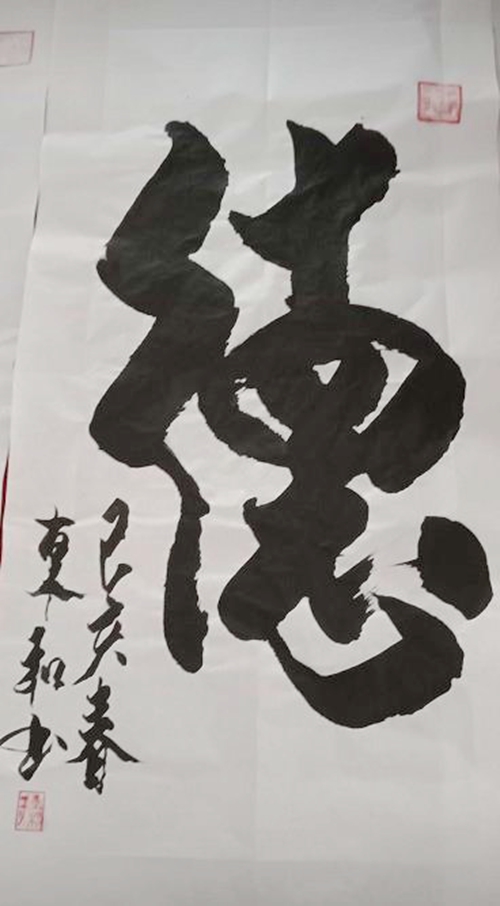 德
己亥春
東和书